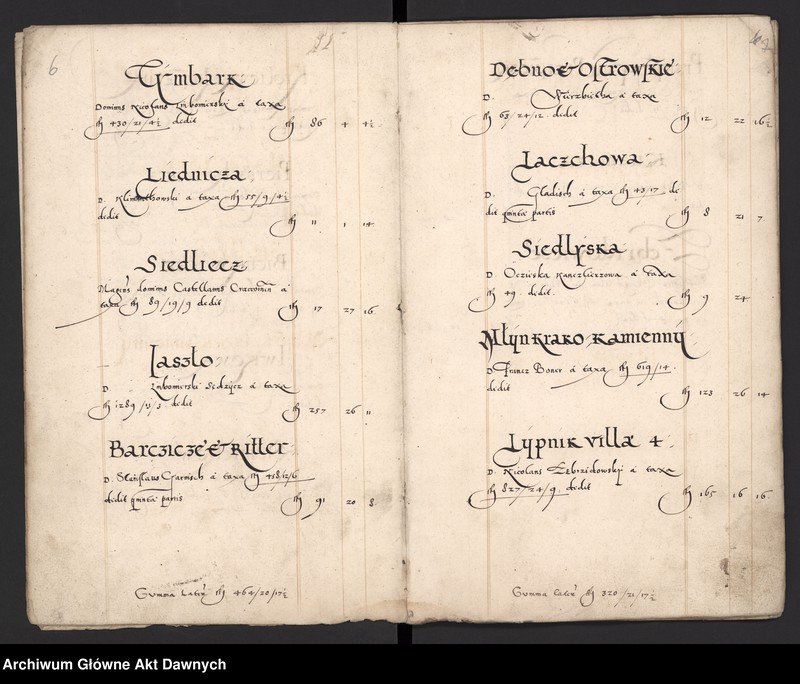 6
Tymbark
Dominus Nicolaus Lubomirskj a taxa
fl 430/21/4½ dedit fl 86 4 4½
Liednicza
D. Klimunthowski a taxa fl 55/9/4½
dedit
fl 11 1 14
Siedliecz
dominus Castellanus a
taxa fl 89/19/9 dedit fl 17 27 16
Iaszlo
D. Lubomirski Sędzycz a taxa
fl 1289/13/3 dedit fl 257 26 11
Barcziczę & Ritter
D. Stanislaus Czarnisch a taxa fl 458/12/6
dedit quinta partis fl 91 20 8
Summa lateris fl 464/20/17½
63
Debno & Ostrowskie
D. Wierzbietha a taxa
fl 63/24/12 dedit fl 12 22 16½
Laczchowa
D. Gladisch a taxa fl 43/17 de
dit quinta partis fl 8 21 7
Siedlyska
D. Oczieska Kanczlierzowa a taxa
fl 49 dedit fl 9 24
Młyn krako kamienny
D. Francz Boner a taxa fl 619/14
dedit fl 123 26 14
Lypnik villa 4
D. Nicolaus Zebrzidowskij a taxa
fl 827/24/9 dedit fl 165 16 16
Summa lateris fl 320/21/17½
Archiwum Główne Akt Dawnych